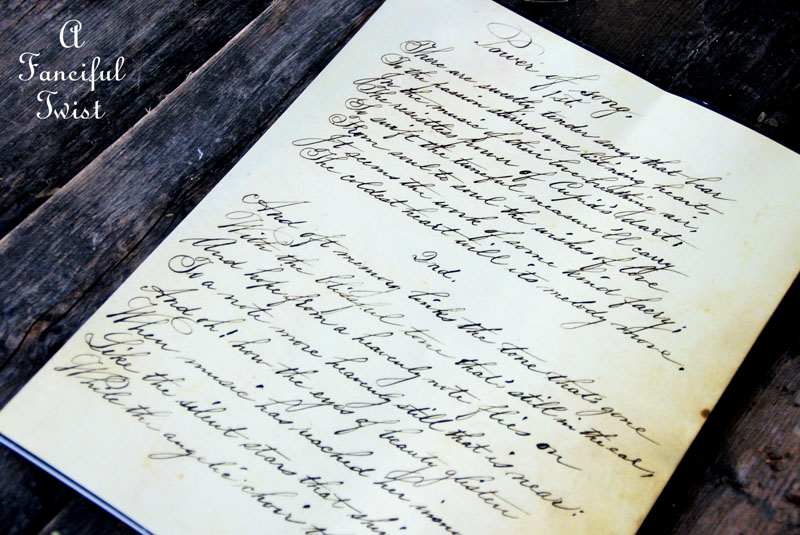 A
Fanciful
Twist
Power of song.
1st.
There are sweetly tender songs that bear
To the passion'd and listening heart,
In the music of their breathing air,
The rewritten power of Cupid's dart,
So swift the tuneful measure'll carry
From soul to soul the winds of love
It seems the work of some kind faery;
The coldest heart will its melody move.
2nd.
And oft memory links the tone that's gone
With the blissful tone that's still in the ear,
And hope from a heavenly note flies on
To a note more heavenly still that is near:
And oh! how the eyes of beauty glisten
When music has reached her
Like the silent stars that
While the angelic choir